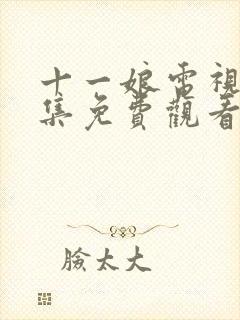 十一娘電視
集免費觀看
臉太大